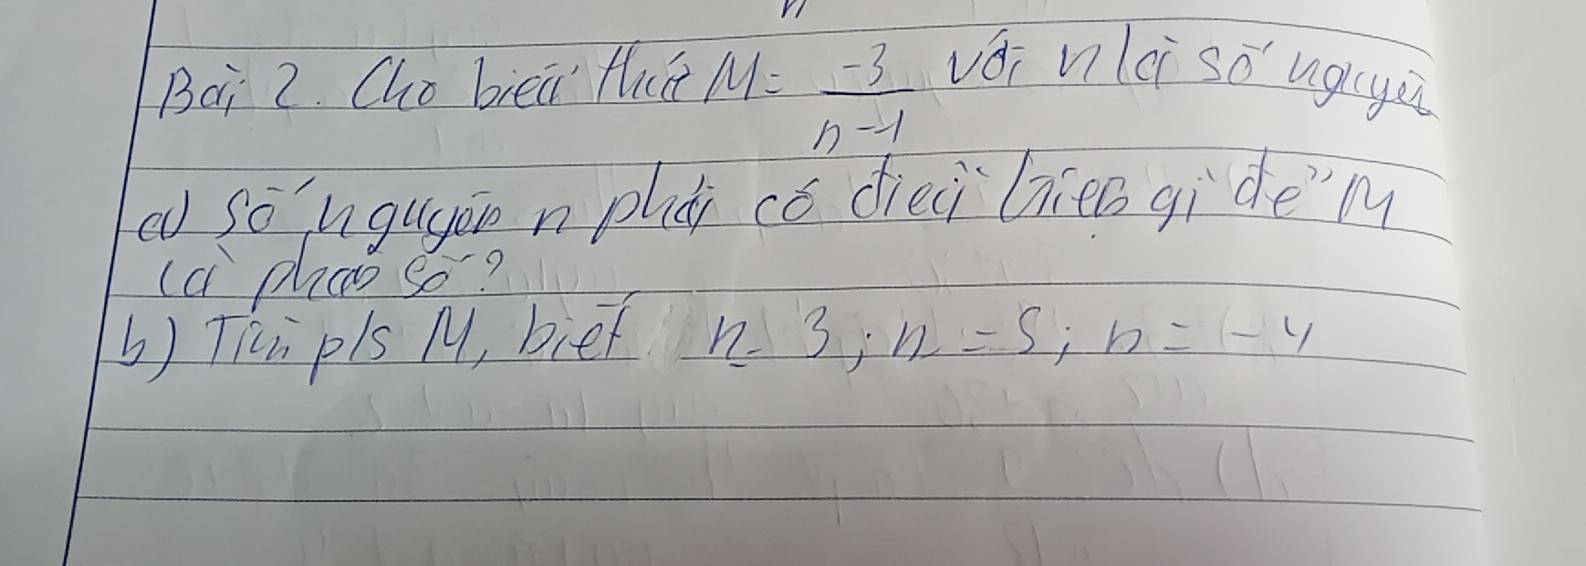 Bài 2. Cho biểu thức M = -3/n-1 với n là số nguyên
a) Số nguyên n phải có điều kiện gì để M
là phân số?
b) Tìm p/s M, biết n = 3; n = 5; n = -4